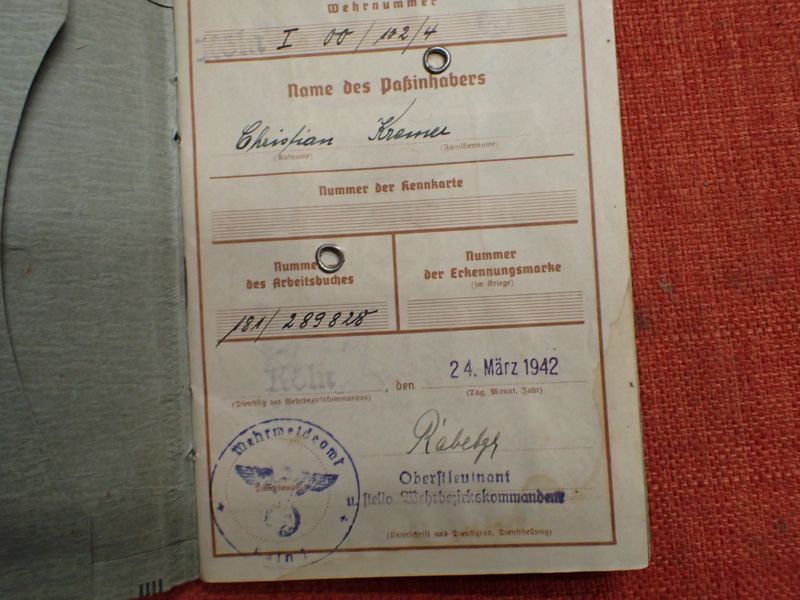 Wehrnummer
Köln I 00/102/4
Name des Paßinhabers
Christian Kremer
(Rufname) (Familienname)
Nummer der Kennkarte
Nummer des Arbeitsbuches
181/289828
Nummer der Erkennungsmarke
(im Kriege)
Köln, den 24. März 1942
(Dienstsitz des Wehrbezirkskommandos) (Tag, Monat, Jahr)
Wehrmeldeamt
Köln 1
Oberstleutnant
u. stello. Wehrbezirkskommandeur
(Unterschrift und Dienstgrad, Dienststellung)